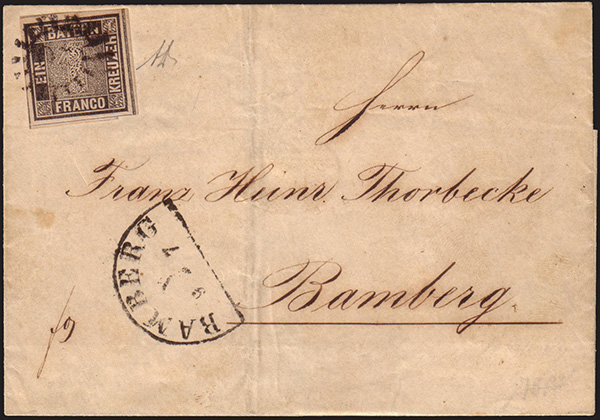 BAYERN
EIN
KREUZER
FRANCO
Herrn
Franz Heinr. Thorbecke
BAMBERG
Bamberg.